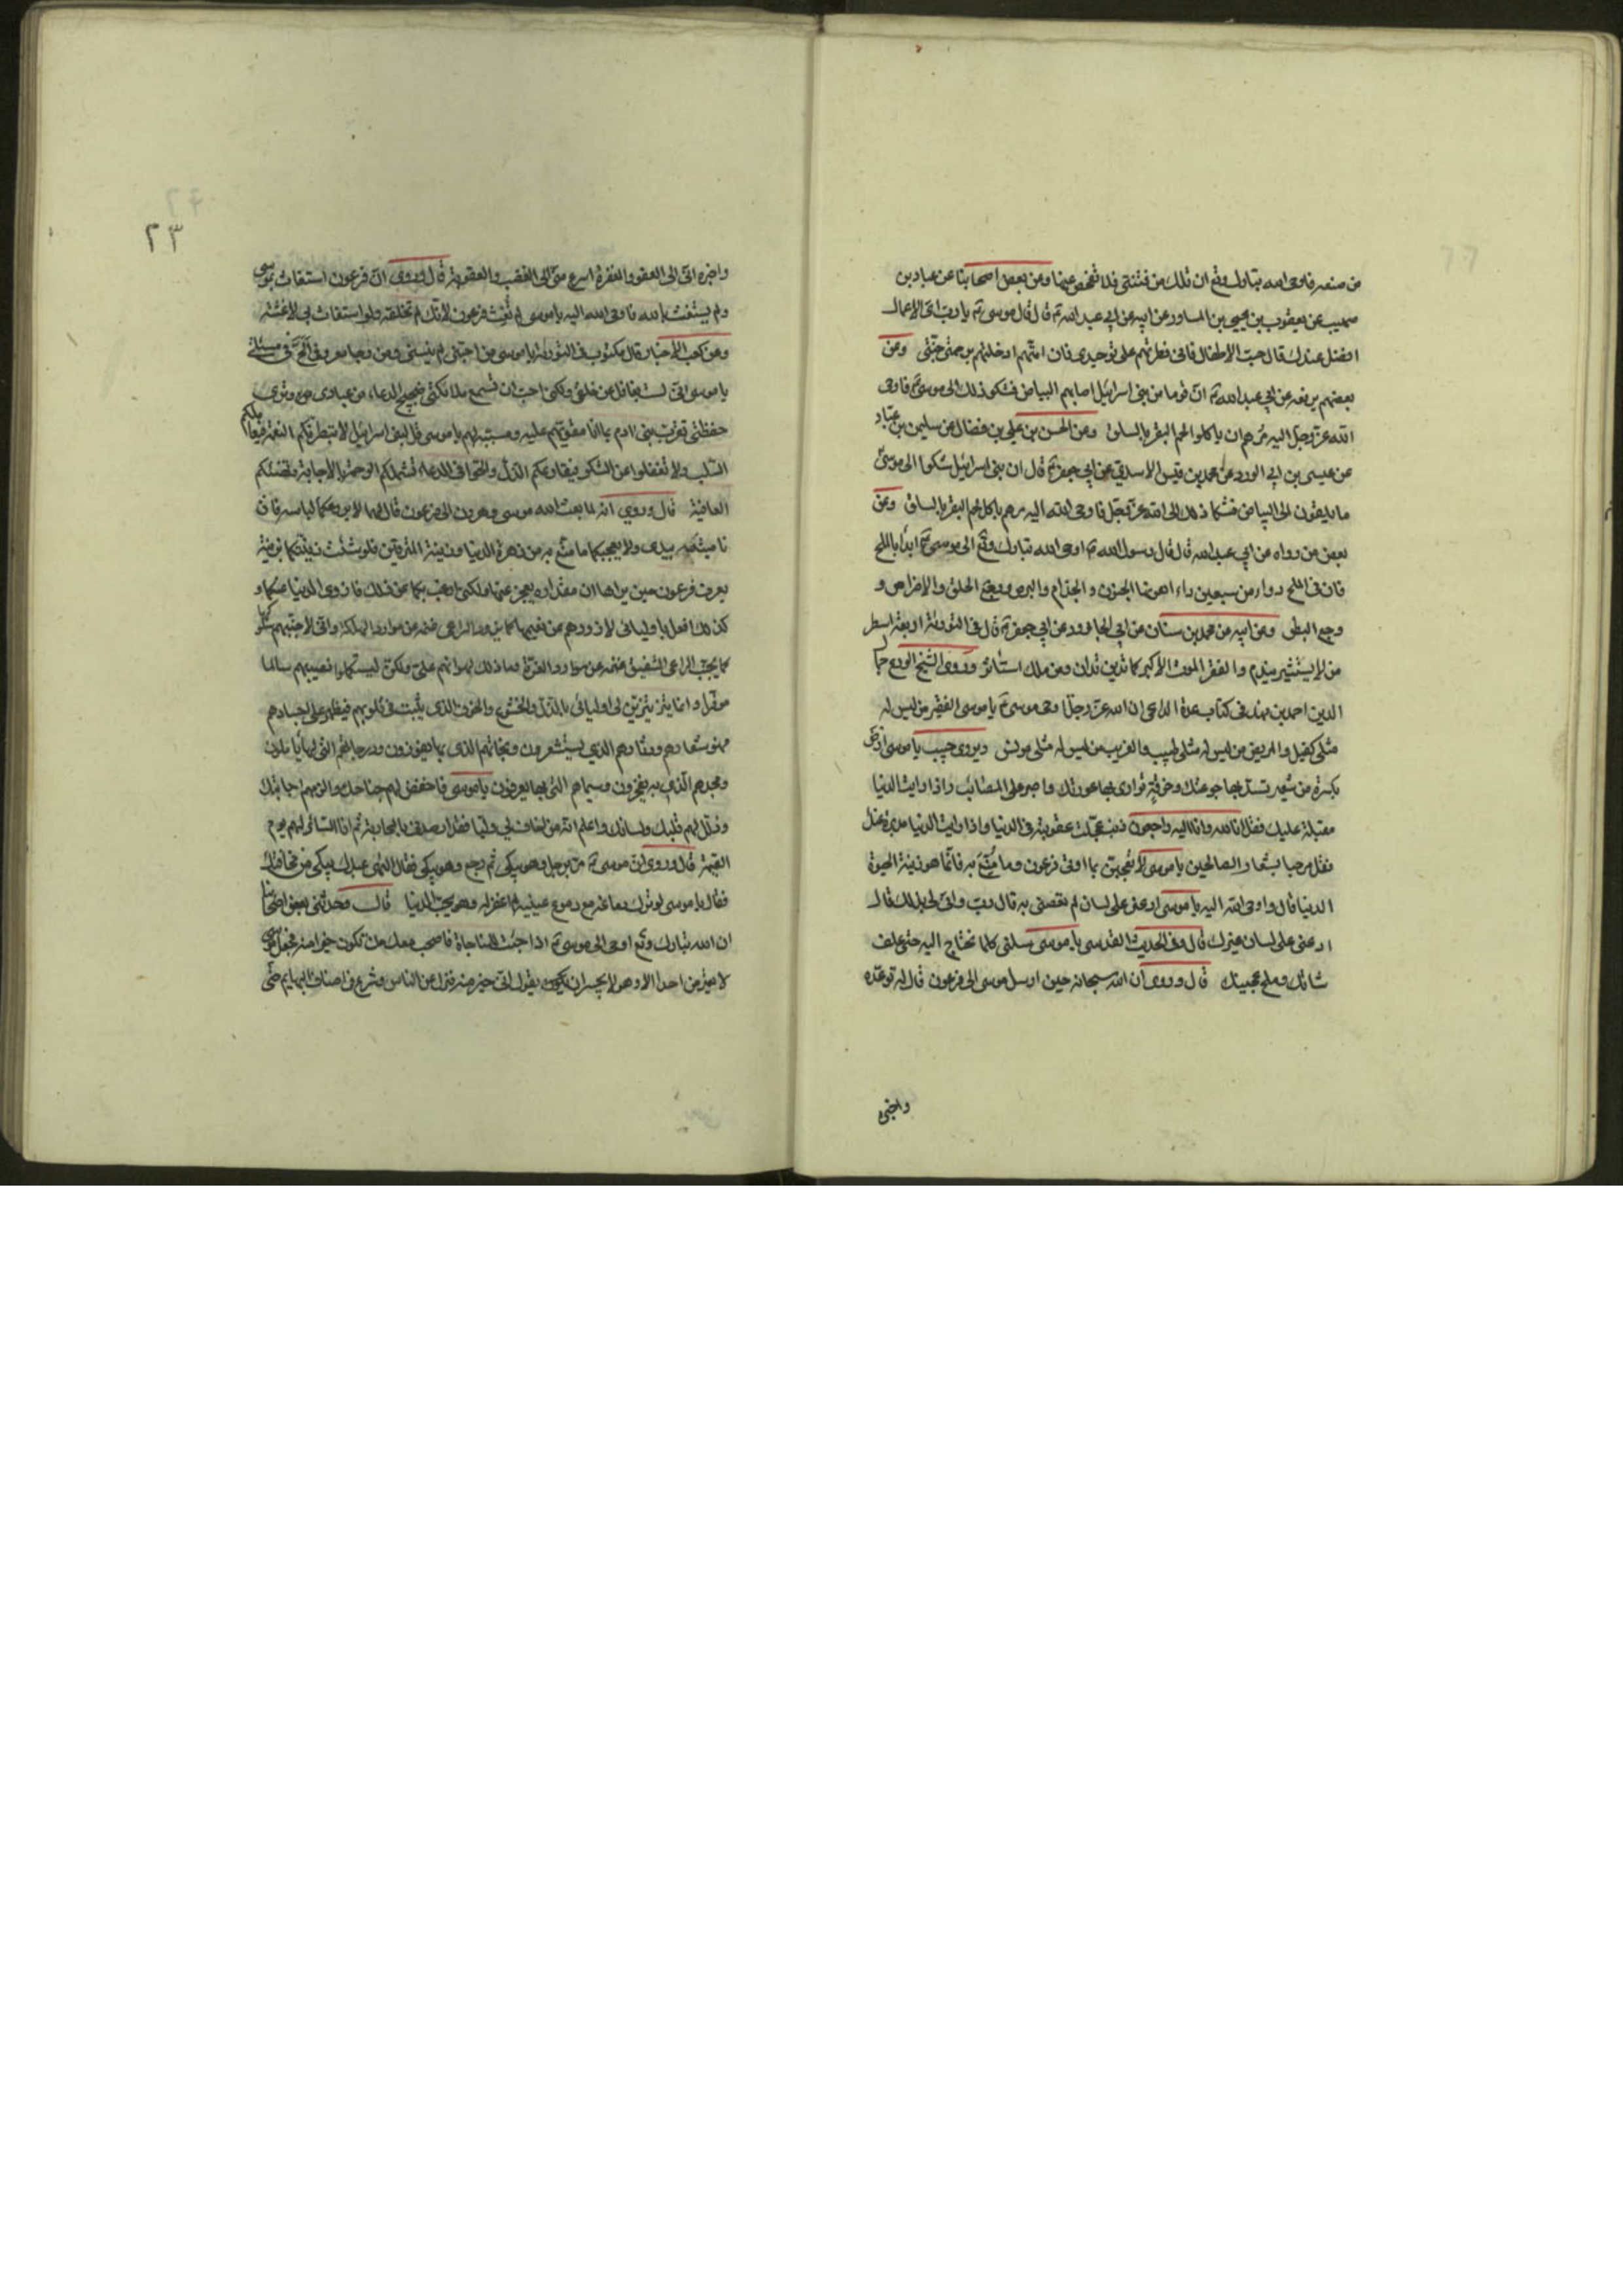 من صنعه فاوحى الله تبارك وتع ان تلك من فتنتى فلا تفحص عنها وعن بعض اصحابنا عن عباد بن
صهيب عن يعقوب بن يحيى بن المساور عن ابيه عن ابى عبد الله ع قال قال موسى ع يا رب اى الاعمال
افضل عندك قال حب الاطفال فانى فطرتهم على توحيدى فان امتهم ادخلتهم برحمتى جنتى وعن
بعضهم يرفعه عن ابى عبد الله ع ان قوما من بنى اسرائيل اصابهم البياض فشكو ذلك الى موسى ع فاوحى
الله عز وجل اليه مرهم ان ياكلوا لحم البقر بالسلق وعن الحسن بن على بن فضال عن سليمن بن عباد
عن عيسى بن ابى الورد عن محمد بن قيس الاسدى عن ابى جعفر ع قال ان بنى اسرائيل شكوا الى موسى
ما يلقون من البياض فشكا ذلك الى الله عز وجل فاوحى الله اليه مرهم باكل لحم البقر بالسلق وعن
بعض من رواه عن ابى عبد الله قال قال رسول الله ص اوحى الله تبارك وتع الى موسى ع ابدأ بالملح
فان فى الملح دواء من سبعين داء اهونها الجنون و الجذام والبرص ووجع الحلق والاضراس و
وجع البطن وعن ابيه عن محمد بن سنان عن ابى الجارود عن ابى جعفر ع قال فى التورية اربعة اسطر
من لا يستشير يندم والفقر الموت الاكبر كما تدين تدان ومن ملك استأثر وروى الشيخ الورع جمال
الدين احمد بن فهد فى كتاب عدة الداعى ان الله عز وجل اوحى موسى ع يا موسى الفقير من ليس له
مثلى كفيل والمريض من ليس له مثلى طبيب والغريب من ليس له مثلى مونس ويروى حبيب يا موسى ارض
بكسرة من شعير تسد بها جوعتك وخرقة توارى بها عورتك واصبر على المصائب واذا رايت الدنيا
مقبلة عليك فقل انا لله وانا اليه راجعون ذنب عجلت عقوبته فى الدنيا واذا رايت الدنيا مدبرة عنك
فقل مرحبا بشعار الصالحين يا موسى لا تعجبن بما اوتى فرعون وما متع به فانما هو زينة الحيوة
الدنيا قال واوحى الله اليه يا موسى ادعنى على لسان لم تعصنى به قال رب وانى لى بذلك قال
ادعنى على لسان غيرك قال وفى الحديث القدسى يا موسى سلنى كلما تحتاج اليه حتى علف
شاتك وملح عجينك قال وروى ان الله سبحانه حين ارسل موسى الى فرعون قال له توعده
واخبره
٢٣
واخبره انى الى العفو والمغفرة اسرع منى الى الغضب والعقوبة قال وروى ان فرعون استغاث بموسى
ولم يستغث بالله فاوحى الله اليه يا موسى لم تغث فرعون لانك لم تخلقه ولو استغاث بى لاغثته
وعن كعب الاحبار قال مكتوب فى التورية يا موسى من احبنى لم ينسنى ومن رجا معروفى الح فى مسئلتى
يا موسى انى لست بغافل عن خلقى ولكنى احب ان تسمع ملائكتى ضجيج الدعاء من عبادى وترى
حفظتى تقرب بنى ادم بما انا مقويهم عليه ومسببه لهم يا موسى قل لبنى اسرائيل لا تبطرنكم النعمة فيعاجلكم
السلب ولا تغفلوا عن الشكر فيقارعكم الذل والحوا فى الدعاء تشملكم الرحمة بالاجابة وتهنئكم
العافية قال وروى انه لما بعث الله موسى وهرون الى فرعون قال لهما لا يروعكما لباسه فان
ناصيته بيدى ولا يعجبكما ما متع به من زهرة الدنيا وزينة المترفين فلو شئت زينتكما بزينة
يعرف فرعون حين يراها ان مقدرته يعجز عنها ولكنى ارغب بكما عن ذلك فازوى الدنيا عنكما و
كذلك افعل باوليائى لازودهم عن نعيمها كما يذود الراعى غنمه عن موارد الهلكة وانى لاجنبهم سلوكها
كما يجنب الراعى الشفيق غنمه عن موارد الغرة وما ذلك لهوانهم على ولكن ليستكملوا نصيبهم سالما
موفرا وانما يتزين لى اوليائى بالذل والخشوع والخوف الذى يثبت فى قلوبهم فيظهر على اجسادهم
فهو شعارهم ودثارهم الذى يستشعرون ونجاتهم الذى بها يفوزون ودرجاتهم التى لها يأملون
ومجدهم الذى به يفخرون وسيماهم التى بها يعرفون يا موسى فاخفض لهم جناحك والن لهم جانبك
وذلل لهم قلبك ولسانك واعلم انه من اخاف لى وليا فقد ارصدنى بالمحاربة ثم انا الثائر لهم يوم
القيمة قال وروى ان موسى ع مر برجل وهو يبكى ثم رجع وهو يبكى فقال الهى عبدك يبكى من مخافتك
فقال يا موسى لو نزل دماغه مع دموع عينيه لم اغفر له وهو يحب الدنيا قال وحدثنى بعض اصحابنا
ان الله تبارك وتع اوحى الى موسى ع اذا جئت للمناجاة فاصحب معك من تكون خيرا منه فجعل موسى
لا يعترض احدا الا وهو لا يجسر ان يقول انى خير منه فنزل عن الناس وشرع فى اصناف البهايم حتى